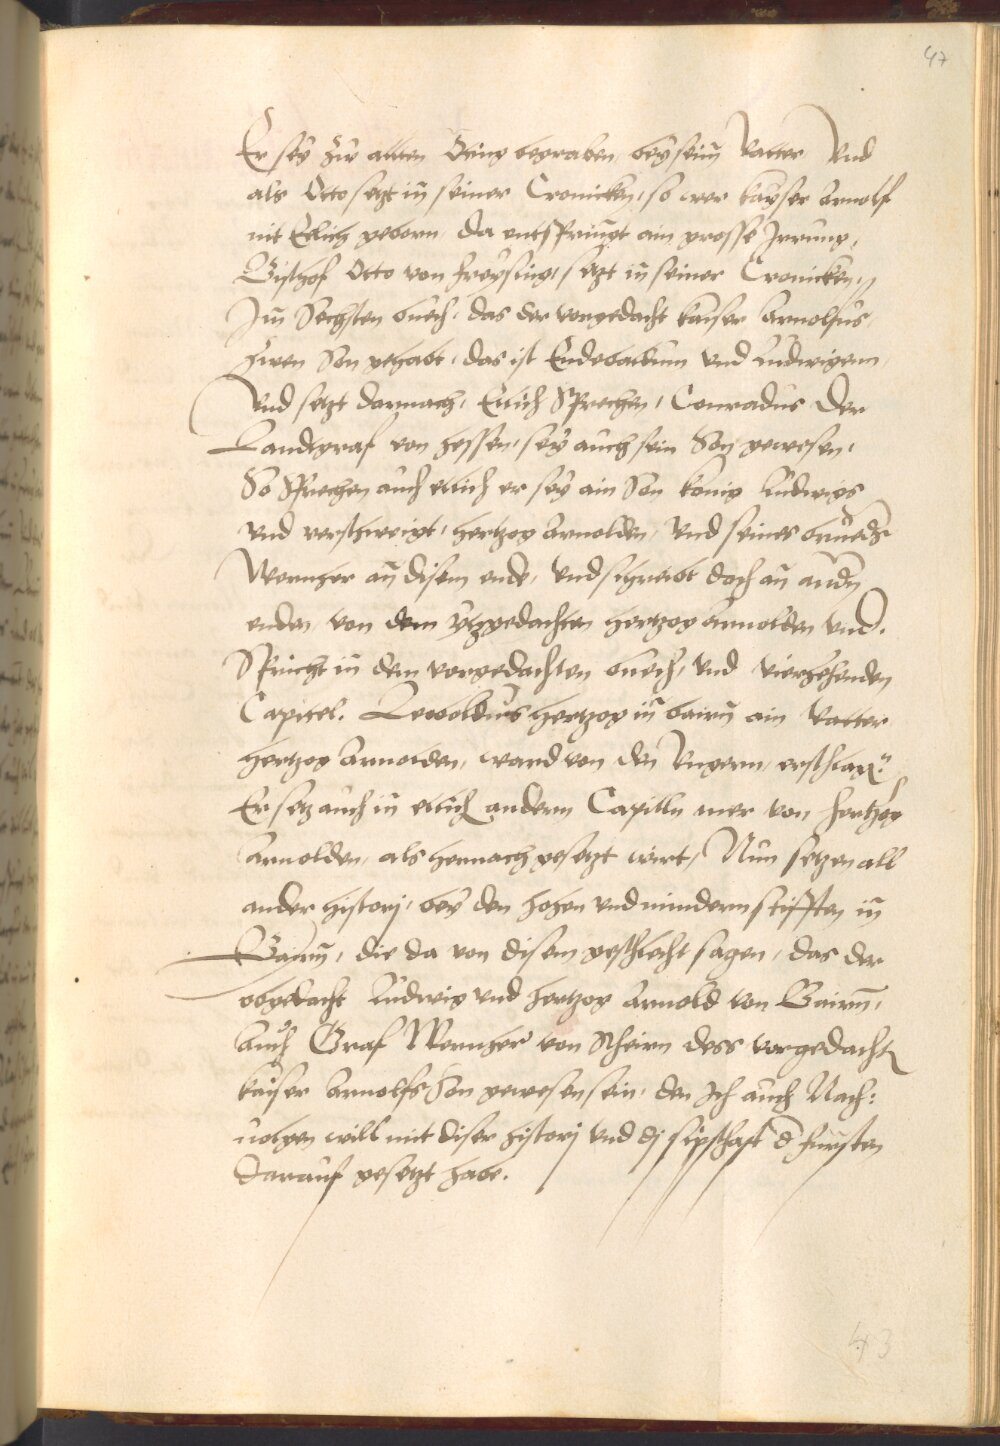 47
Er seÿ zw allten Öting begraben, beÿ seim̃ Vatter Vnd
als Otto setzt in̄ seiner Cronicken, so wer kaÿser Arnolf
nit Elich geborn, da entspringt ain grosse Irrung,
Bischof Otto von freÿsing, setzt in̄ seiner Cronicken,
Im̄ Sechsten buech, das der vorgedacht kaiser Arnolfus
zwen Son gehabt, das ist Endebaldum vnd Ludwigenn
Vnd setzt darnach, Etlich Sprechen, Conradus Der
Landtgraf von hessen, seÿ auch sein Son gewesen,
So Sprechen auch etlich er seÿ ain Son konig Ludwigs
vnd verschweigt, hertzog Arnolden, Vnd seines brueders
Wernher an̄ disem ende, Vnd schreibt doch an̄ andn̄
enden, von dem ÿtzgedachten hertzog Arnolden vnd.
Spricht in̄ dem vorgedachten buech, vnd Vierzehenden
Capitel. Leoboldus hertzog in̄ bairn̄ ain Vatter
hertzog Arnolden, ward von den̄ Vngern, erschlagn̄.
Er setz auch in̄ etlich andern Capitln mer von hertzog
Arnolden, als hernach gesetzt wirt, Nun setzen all
ander historj, beÿ den hohen vnd mindern stifften in̄
Bairn̄, die da von disem geschlecht sagen, das der
obgedacht Ludwig vnd hertzog Arnold von Bairn̄,
Auch Graf Wernher von Scheirn dess vorgedacht
kaiser Arnolfs Son gewesen sein, den Ich auch Nach:
uolgen will mit diser historj vnd dj sipschaft d̄ fürsten
darauf gesetzt habe.
43